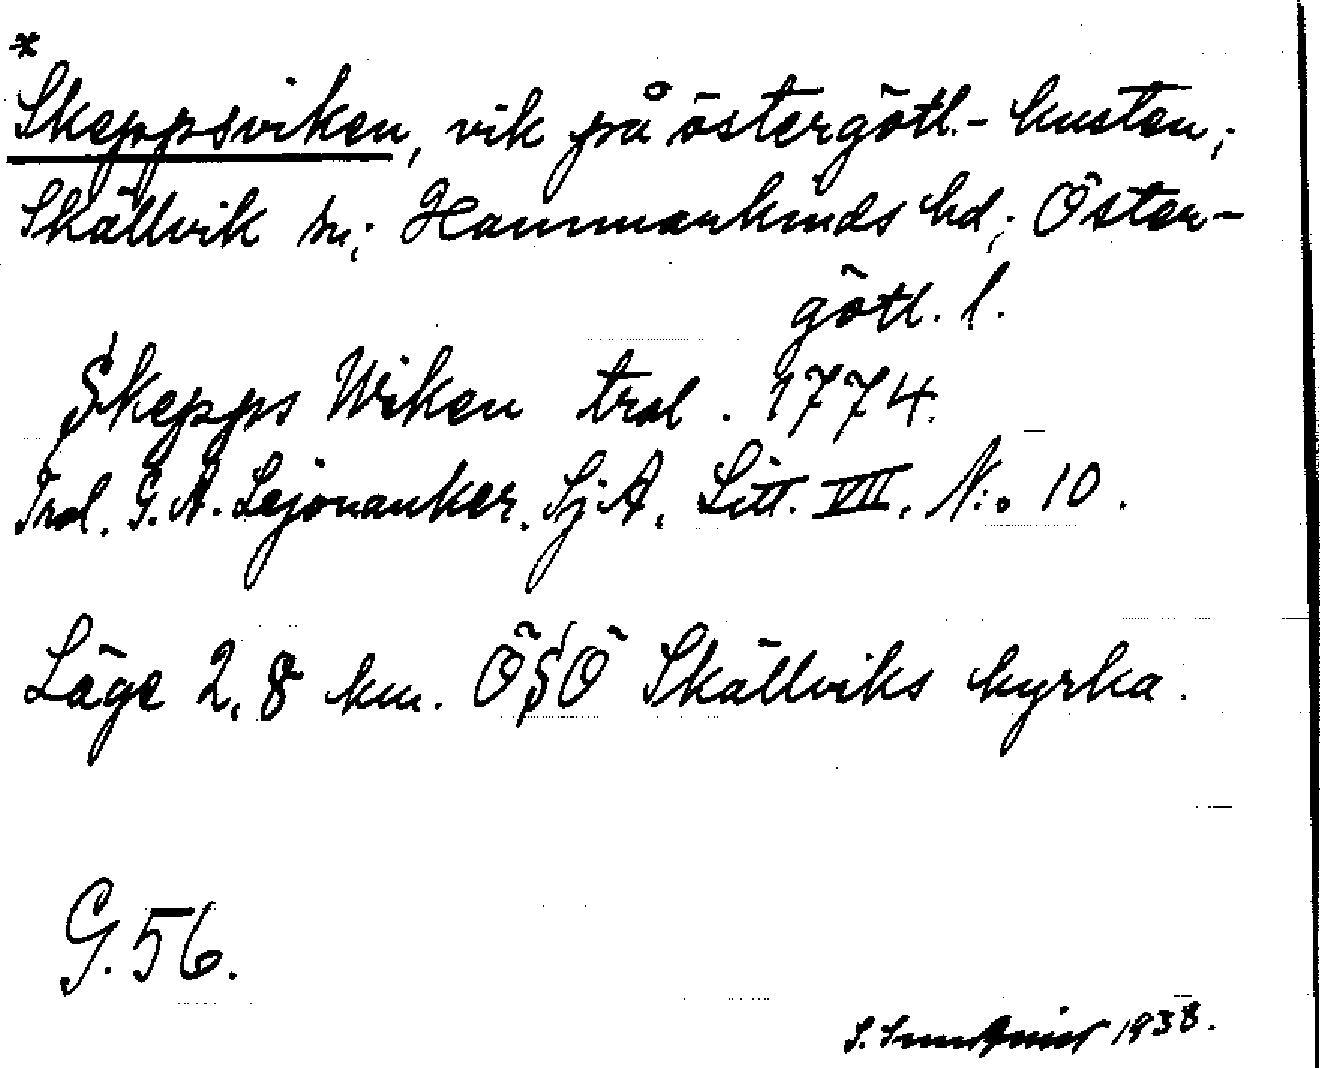 *
Skeppsviken, vik på östergötl.- kusten;
Skällvik sn; Hammarkinds hd; Öster-
götl. l.
Skepps Wiken trol. 1774.
Trol. G. A. Lejonanker. SjA. Litt. VII. N:o 10.
Läge 2,8 km. ÖSÖ Skällviks kyrka.
G. 56.
S. 1938.